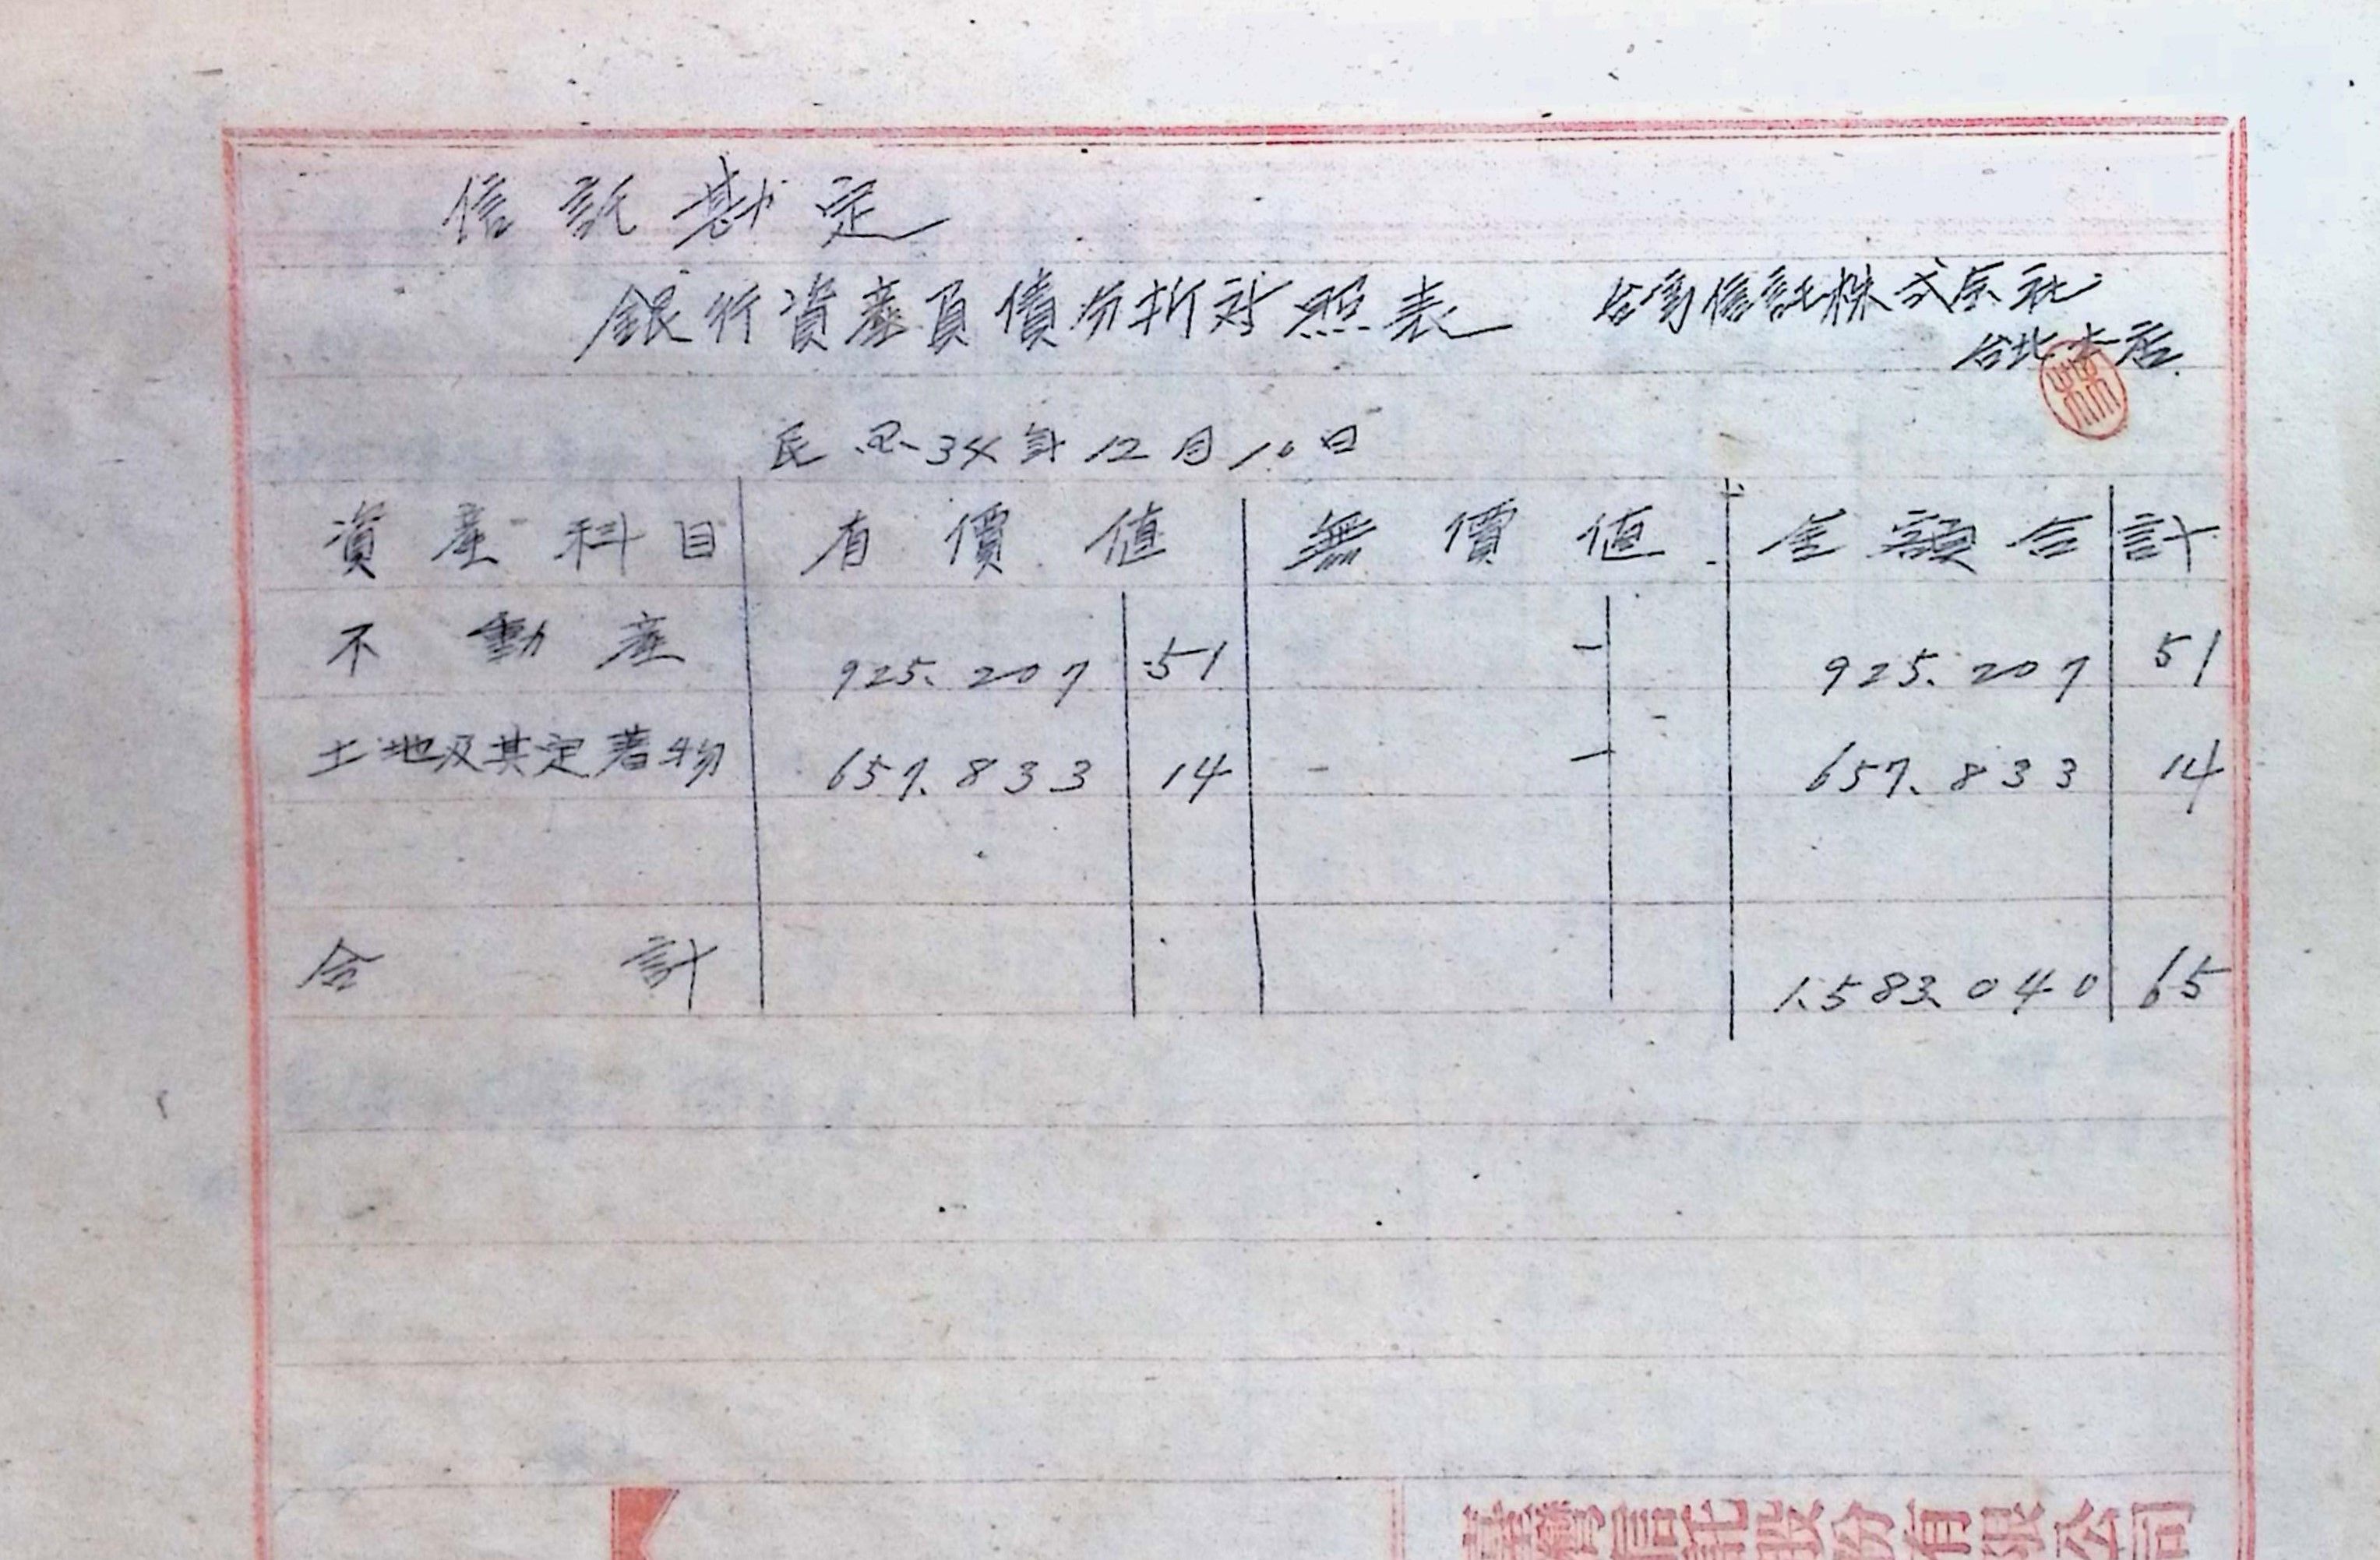 信託勘定
銀行資產負債分析対照表 台湾信託株式会社
台北本店
民国34年12月10日
資產科目 有價值 無價值 金額合計
不動產 925.207 51 - 925.207 51
土地及其定着物 657.833 14 - 657.833 14
合計 1.583.040 65
臺灣信託股份有限公司